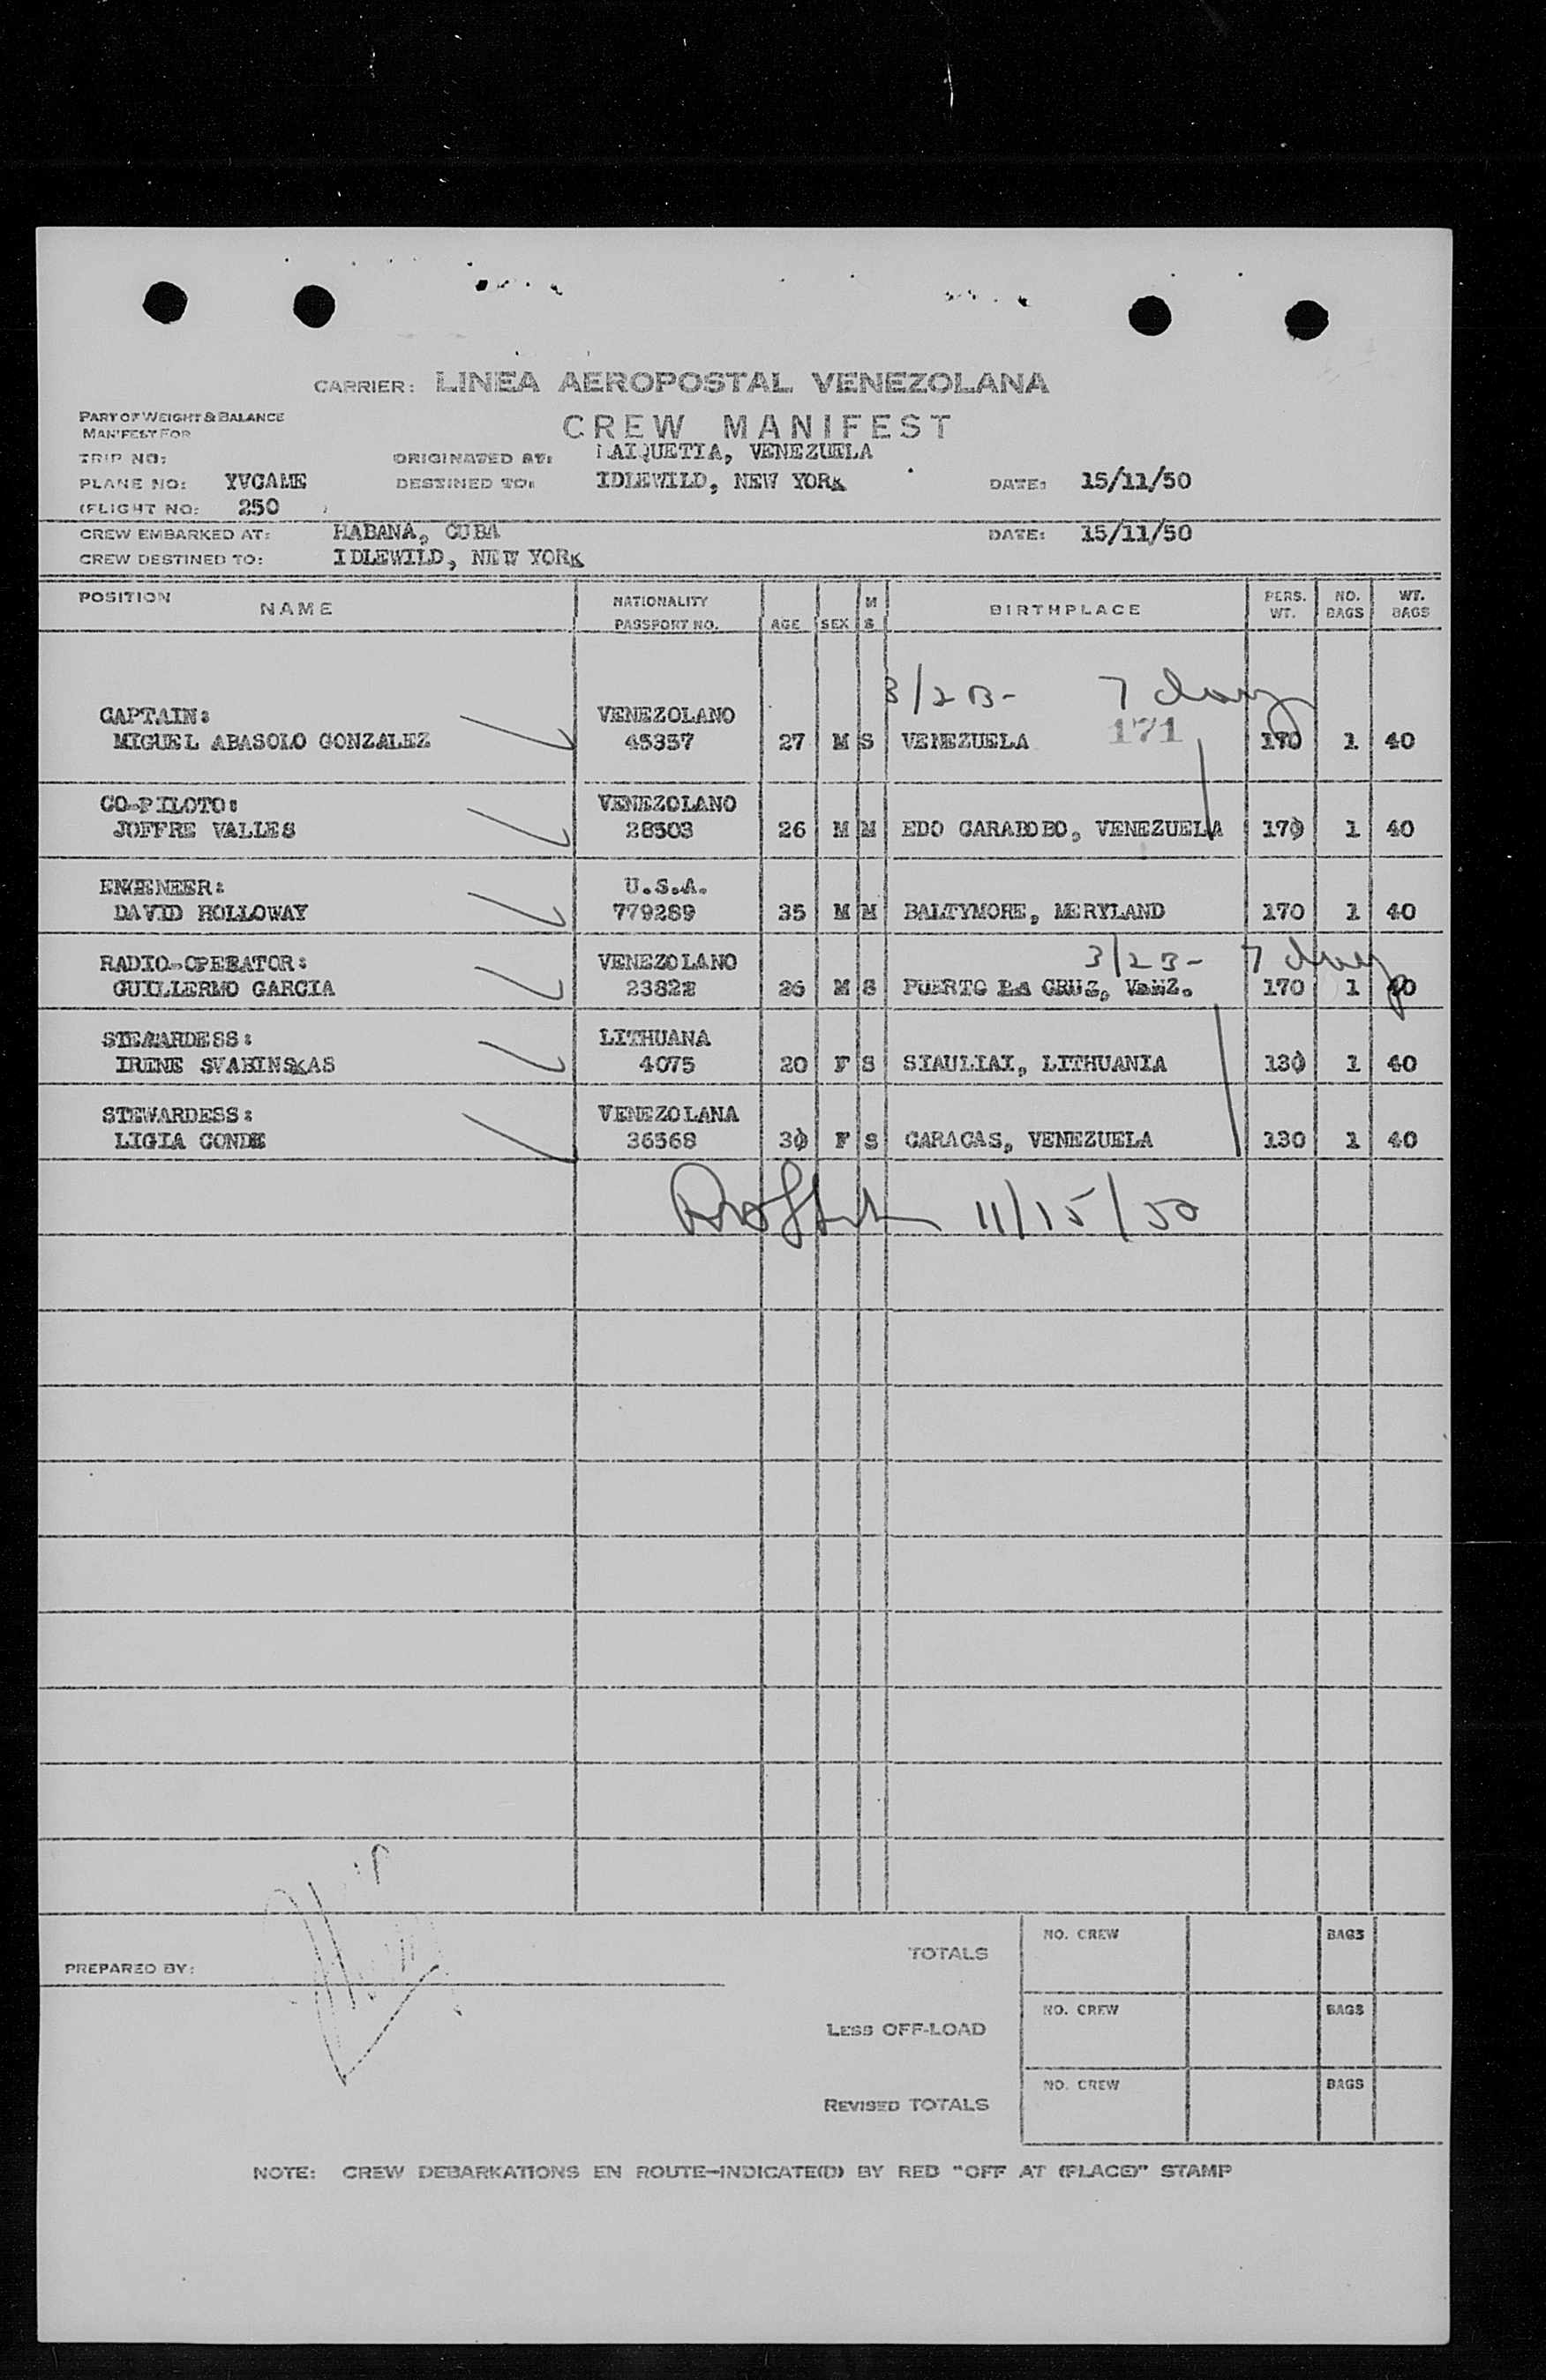 CARRIER: LINEA AEROPOSTAL VENEZOLANA
PART OF WEIGHT & BALANCE
MANIFEST FOR
CREW MANIFEST
TRIP NO: ORIGINATED AT: MAIQUETIA, VENEZUELA
PLANE NO: YVCAME DESTINED TO: IDLEWILD, NEW YORK DATE: 15/11/50
(FLIGHT NO: 250 )
CREW EMBARKED AT: HABANA, CUBA DATE: 15/11/50
CREW DESTINED TO: IDLEWILD, NEW YORK
POSITION NAME NATIONALITY PASSPORT NO. AGE SEX M S BIRTHPLACE PERS. WT. NO. BAGS WT. BAGS
3/2 B- 7 days
CAPTAIN: VENEZOLANO 171
MIGUEL ABASOLO GONZALEZ 45357 27 M S VENEZUELA 170 1 40
CO-PILOTO: VENEZOLANO
JOFFRE VALLES 28503 26 M M EDO CARABOBO, VENEZUELA 170 1 40
ENGENEER: U.S.A.
DAVID HOLLOWAY 779289 35 M M BALTYMORE, MERYLAND 170 1 40
RADIO-OPERATOR: VENEZOLANO 3/2 B- 7 days
GUILLERMO GARCIA 23822 26 M S PUERTO LA CRUZ, VENZ. 170 1 40
STEWARDESS: LITHUANA
IRENE SVABINSKAS 4075 20 F S SIAULIAI, LITHUANIA 130 1 40
STEWARDESS: VENEZOLANA
LIGIA CONDE 36568 30 F S CARACAS, VENEZUELA 130 1 40
11/15/50
PREPARED BY:
TOTALS NO. CREW BAGS
LESS OFF-LOAD NO. CREW BAGS
REVISED TOTALS NO. CREW BAGS
NOTE: CREW DEBARKATIONS EN ROUTE-INDICATE(D) BY RED "OFF AT (PLACE)" STAMP